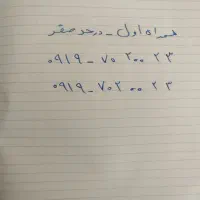 همراه اول - درحد صفر
۰۹۱۹ - ۷۰ ۲۰۰ ۲۳
۰۹۱۹ - ۷۰۲ ۰۰ ۲۳